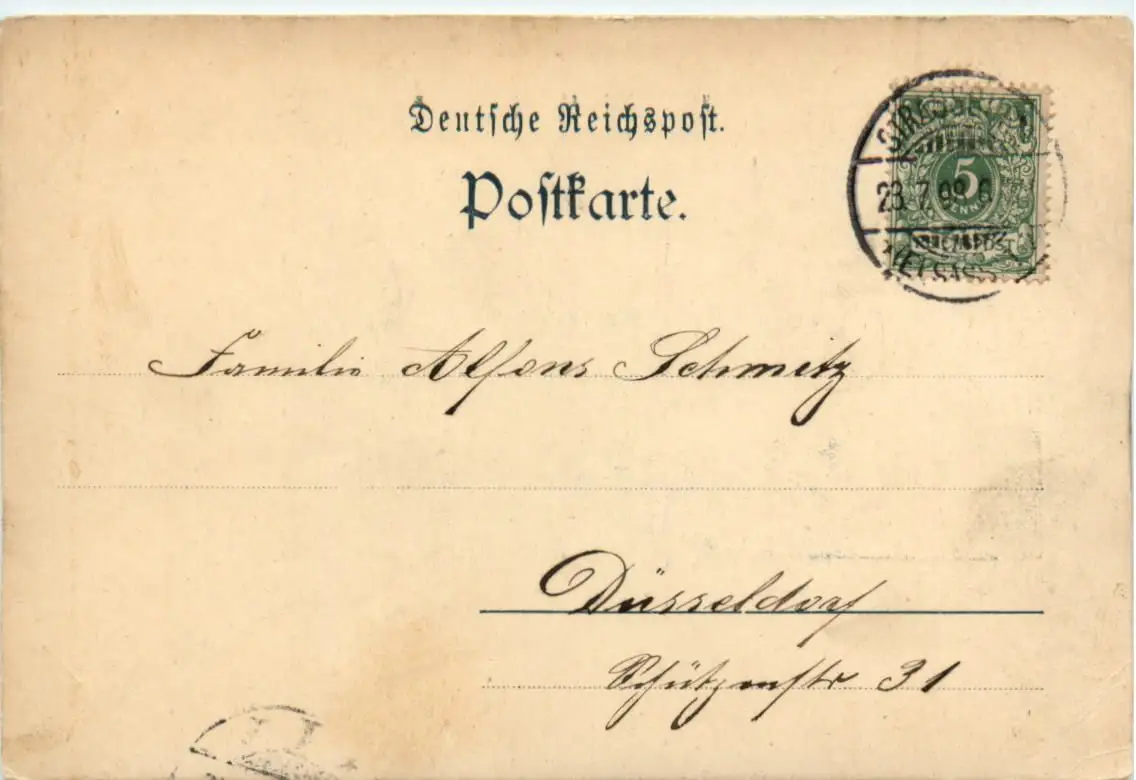 Deutsche Reichspost.
Postkarte.
23.7.98.6
5
REICHSPOST
(ELSASS)
Familie Alfons Schmitz
Düsseldorf
Schützenstr 31